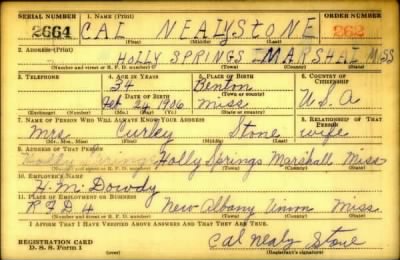 SERIAL NUMBER 1. NAME (Print) ORDER NUMBER
2664 CAL NEALY STONE 262
(First) (Middle) (Last)
2. ADDRESS (Print)
HOLLY SPRINGS MARSHAL MISS
(Number and street or R. F. D. number) (Town) (County) (State)
3. TELEPHONE 4. AGE IN YEARS 5. PLACE OF BIRTH 6. COUNTRY OF CITIZENSHIP
34 Benton
DATE OF BIRTH (Town or county)
Feb 24 1906 Miss U.S.A
(Exchange) (Number) (Mo.) (Day) (Yr.) (State or country)
7. NAME OF PERSON WHO WILL ALWAYS KNOW YOUR ADDRESS 8. RELATIONSHIP OF THAT PERSON
Mrs. Curley Stone wife
(Mr., Mrs., Miss) (First) (Middle) (Last)
9. ADDRESS OF THAT PERSON
Holly Springs Marshall Miss
(Number and street or R. F. D. number) (Town) (County) (State)
10. EMPLOYER'S NAME
H. McDowdy
11. PLACE OF EMPLOYMENT OR BUSINESS
R F D 4 New Albany Union Miss.
(Number and street or R. F. D. number) (Town) (County) (State)
I AFFIRM THAT I HAVE VERIFIED ABOVE ANSWERS AND THAT THEY ARE TRUE.
REGISTRATION CARD Cal Nealy Stone
D. S. S. Form 1 (Registrant's signature)